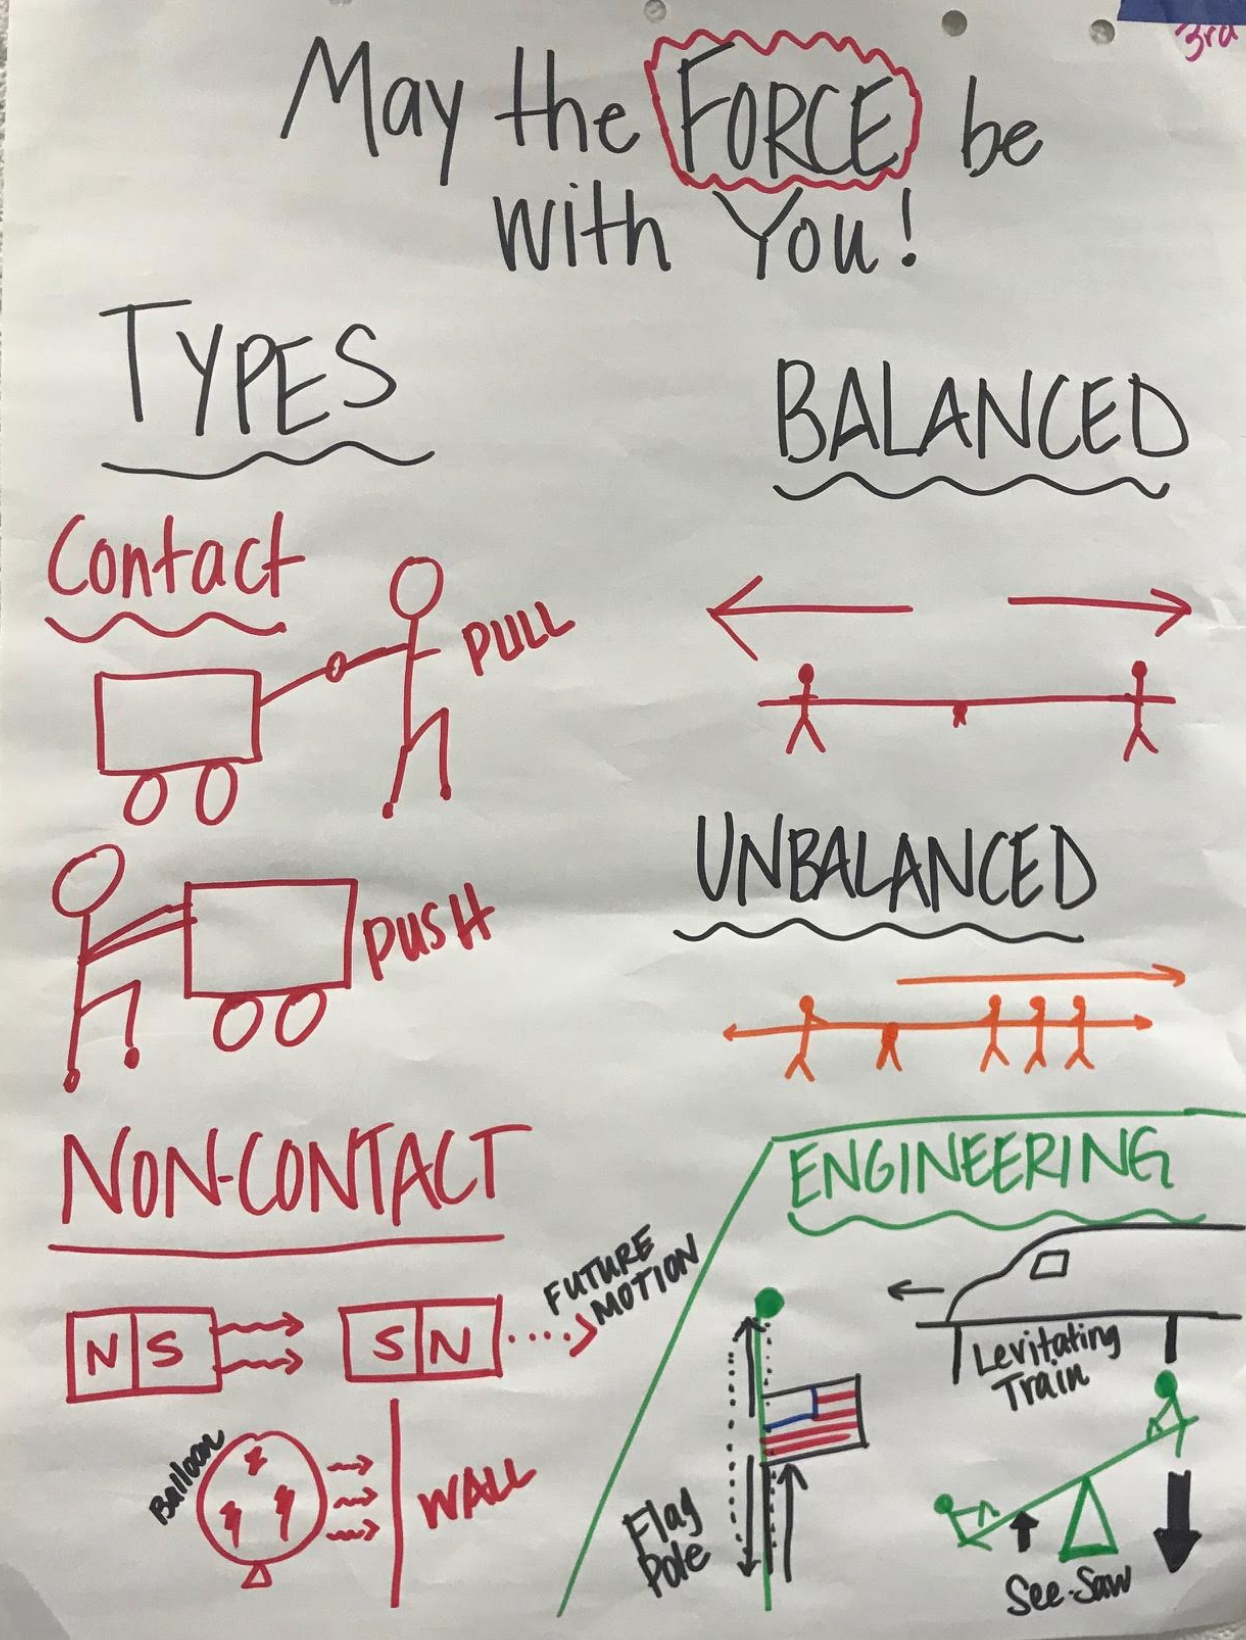 3rd
May the FORCE be
with You!
TYPES
Contact
PULL
PUSH
NON-CONTACT
N S
S N
FUTURE
MOTION
Balloon
WALL
BALANCED
UNBALANCED
ENGINEERING
Levitating
Train
Flag
Pole
See-Saw